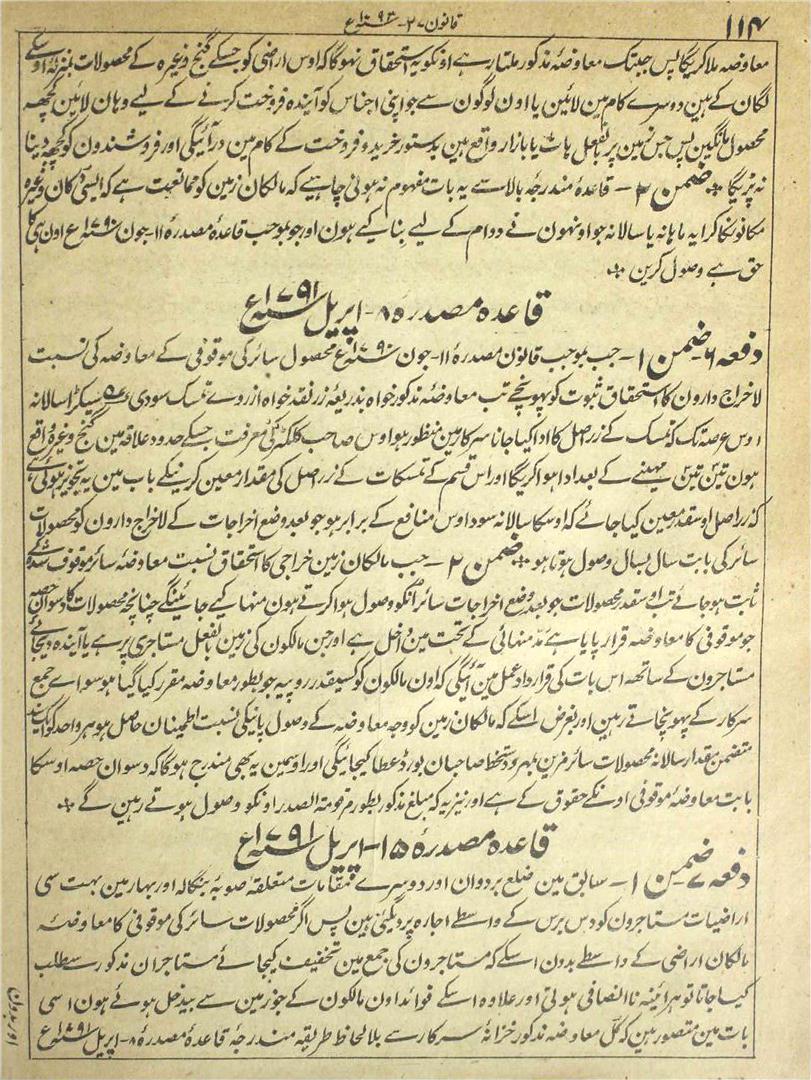 ۱۱۴
قانون ۲۷ - ۱۷۹۳ سنہ ع
معاوضہ ملا کریگا پس جبتک معاوضۂ مذکور ملتا رہے اونکو یہ استحقاق نہوگا کہ اوس اراضی کو جسکے گنج وغیرہ کے محصولات بمنزلہ اوسکے
لگان کے ہین دوسرے کام مین لائین یا اون لوگون سے جو اپنی اجناس کو آیندہ فروخت کرنے کے لیے وہان لائین کچھہ
محصول مانگین پس جس زمین پر بالفعل ہاٹ یا بازار واقع ہین بدستور خرید و فروخت کے کام مین در آئیگی اور فروشندون کو کچھہ دینا
نہ پڑیگا ؞ ضمن ۲ - قاعدۂ مندرجۂ بالا سے یہ بات مفہوم نہ ہونی چاہیے کہ مالکان زمین کو ممانعت ہے کہ ایسی دکان وغیرہ
مکانونکا کرایہ ماہانہ یا سالانہ جو اونہون نے دوام کے لیے بنا کیے ہون اور جو بموجب قاعدۂ مصدرۂ ۱۱ - جون سنہ ۱۷۹۰ ع اون ہی کا
حق ہے وصول کرین ؞
قاعدہ مصدرہ ۸ - اپریل سنہ ۱۷۹۱ ع
دفعہ ۶ ضمن ۱ - جب بموجب قانون مصدرۂ ۱۱ - جون سنہ ۱۷۹۰ ع محصول سائر کی موقوفی کے معاوضہ کی نسبت
لاخراج دارون کا استحقاق ثبوت کو پہونچے تب معاوضۂ مذکور خواہ بذریعۂ زرنقد خواہ ازروے تمسک سودی ۵ سیکڑا سالانہ
اوس عرصہ تک کہ تمسک کے زر اصل کا ادا کیا جانا سرکار مین منظور ہو اوس صاحب کلکٹر کی معرفت جسکے حدود علاقہ مین گنج وغیرہ واقع
ہون تین تین مہینے کے بعد ادا ہوا کریگا اور اس قسم کے تمسکات کے زر اصل کی مقدار معین کرنیکے باب مین یہ تجویز ہوئی ہے
کہ زر اصل اوسقدر معین کیا جائے کہ اوسکا سالانہ سود اوس منافع کے برابر ہو جو بعد وضع اخراجات کے لاخراج دارون کو محصولات
سائر کی بابت سال بسال وصول ہوتا ہو ؞ ضمن ۲ - جب مالکان زمین خراجی کا استحقاق نسبت معاوضۂ سائر موقوف شدہ کے
ثابت ہو جائے تب اوسقدر محصولات جو بعد وضع اخراجات سائر انکو وصول ہوا کرتے ہون منہا کیے جائینگے چنانچہ محصولات کا دسوان حصہ
جو موقوفی کا معاوضہ قرار پایا ہے مد منہائی کے تحت مین داخل ہے اور جن مالکون کی زمین بالفعل مستاجری پر ہے یا آیندہ دیجائے
مستاجرون کے ساتھہ اس بات کی قرارداد عمل مین آئیگی کہ اون مالکون کو کسیقدر روپیہ جو بطور معاوضہ مقرر کیا گیا ہو سواے جمع
سرکار کے پہونچاتے رہین اور بغرض اسکے کہ مالکان زمین کو وجہ معاوضہ کے وصول پانیکی نسبت اطمینان حاصل ہو ہر واحد کو ایک سند
متضمن مقدار سالانہ محصولات سائر مزین بمہر و دستخط صاحبان بورڈ عطا کیجائیگی اور اوسمین یہ بھی مندرج ہوگا کہ دسوان حصہ اوسکا
بابت معاوضۂ موقوفی اونکے حقوق کے ہے اور نیز یہ کہ مبلغ مذکور بطور مرقومۃ الصدر اونکو وصول ہوتے رہین گے ؞
قاعدہ مصدرہ ۱۵ - اپریل سنہ ۱۷۹۱ ع
دفعہ ۷ ضمن ۱ - سابق مین ضلع بردوان اور دوسرے مقامات متعلقہ صوبۂ بنگالہ اور بہار مین بہت سی
اراضیات مستاجرون کو دس برس کے واسطے اجارہ پر دیگئی ہین پس اگر محصولات سائر کی موقوفی کا معاوضہ
مالکان اراضی کے واسطے بدون اسکے کہ مستاجرون کی جمع مین تخفیف کیجائے مستاجران مذکور سے طلب
کیا جاتا تو ہر آئینہ ناانصافی ہوتی اور علاوہ اسکے فوائد اون مالکون کے جو زمین سے بیدخل ہوئے ہون اسی
بات مین متصور ہین کہ کل معاوضہ مذکور خزانۂ سرکار سے بلا لحاظ طریقہ مندرجۂ قاعدۂ مصدرۂ ۸ - اپریل سنہ ۱۷۹۱ ع